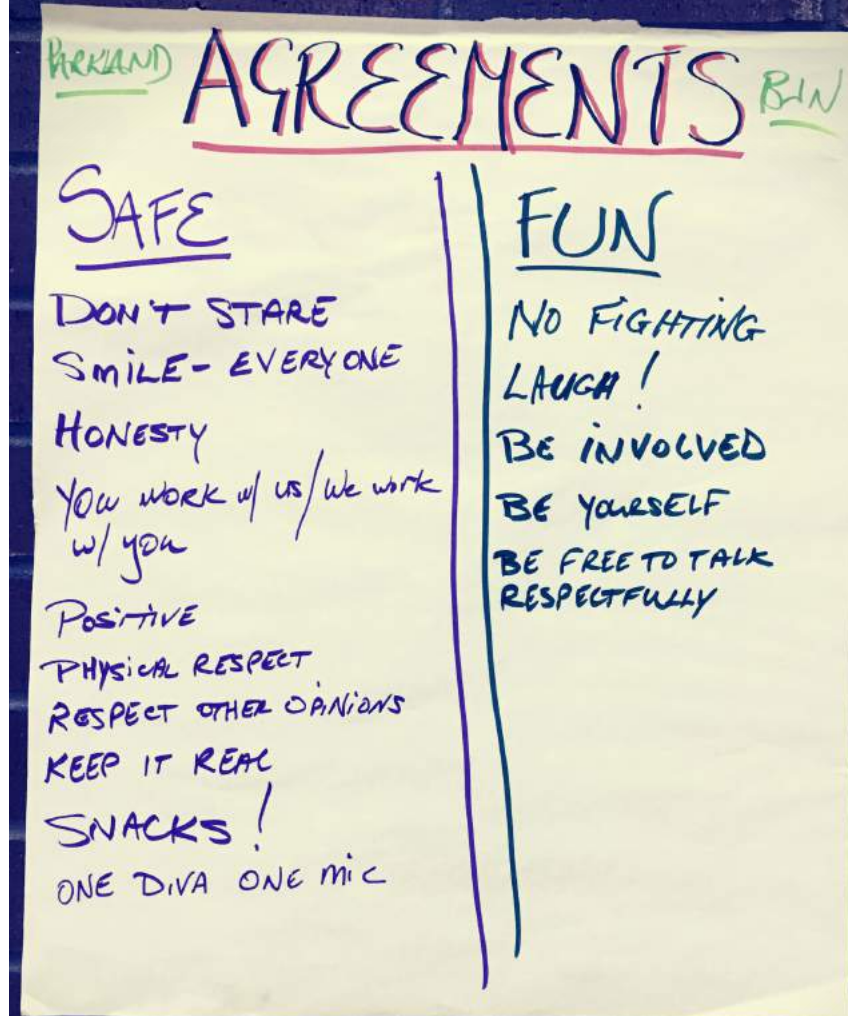 PARKLAND
AGREEMENTS
BLN
SAFE
DON'T STARE
SMILE - EVERYONE
HONESTY
YOU WORK w/ us/We work
w/ you
POSITIVE
PHYSICAL RESPECT
RESPECT OTHER OPINIONS
KEEP IT REAL
SNACKS!
ONE DIVA ONE mic
FUN
NO FIGHTING
LAUGH!
BE INVOLVED
BE YOURSELF
BE FREE TO TALK
RESPECTFULLY